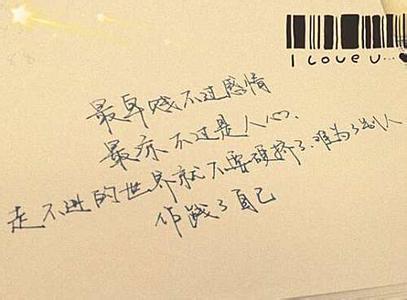 I Love U...
最卑贱不过感情
最凉不过是人心.
走不进的世界就不要硬挤了.难为了别人
作贱了自己